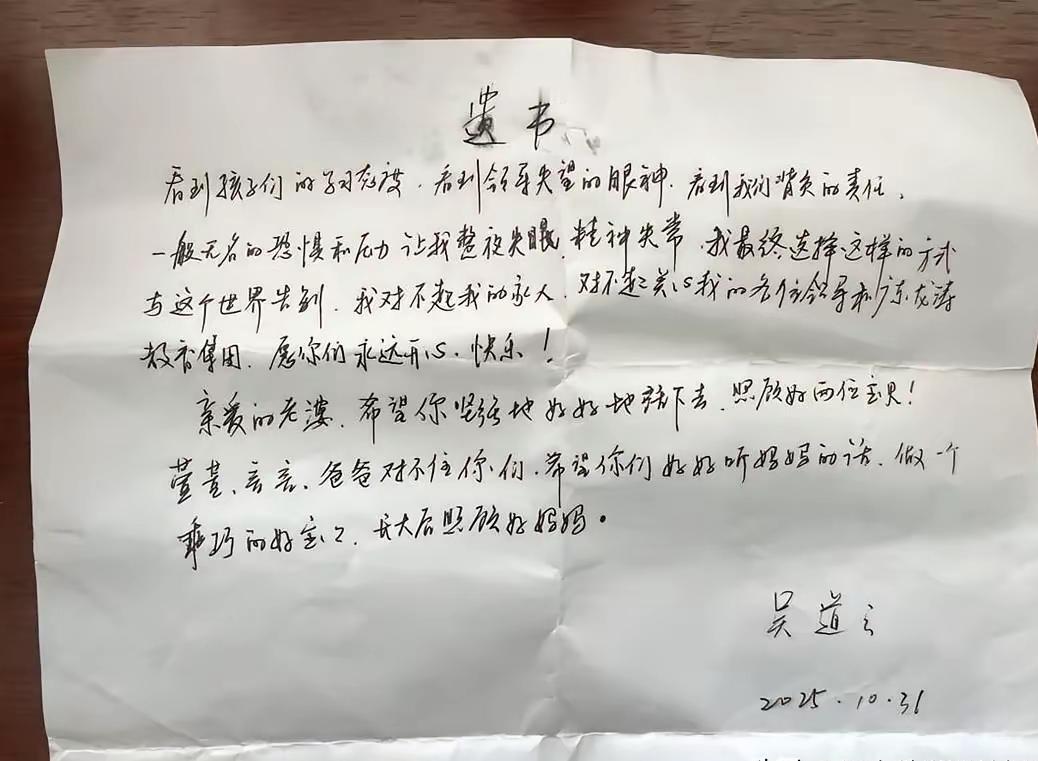 遗书
看到孩子们的学习态度,看到领导失望的眼神,看到我们背负的责任,
一般无名的恐惧和压力让我整夜失眠,精神失常,我最终选择这样的方式
与这个世界告别,我对不起我的家人,对不起关心我的各位领导和
教育集团,愿你们永远开心、快乐!
亲爱的老婆,希望你坚强地好好地活下去,照顾好两位宝贝!
萱萱、言言,爸爸对不住你们,希望你们好好听妈妈的话,做一个
乖巧的好宝宝,长大后照顾好妈妈。
吴道
2025.10.31